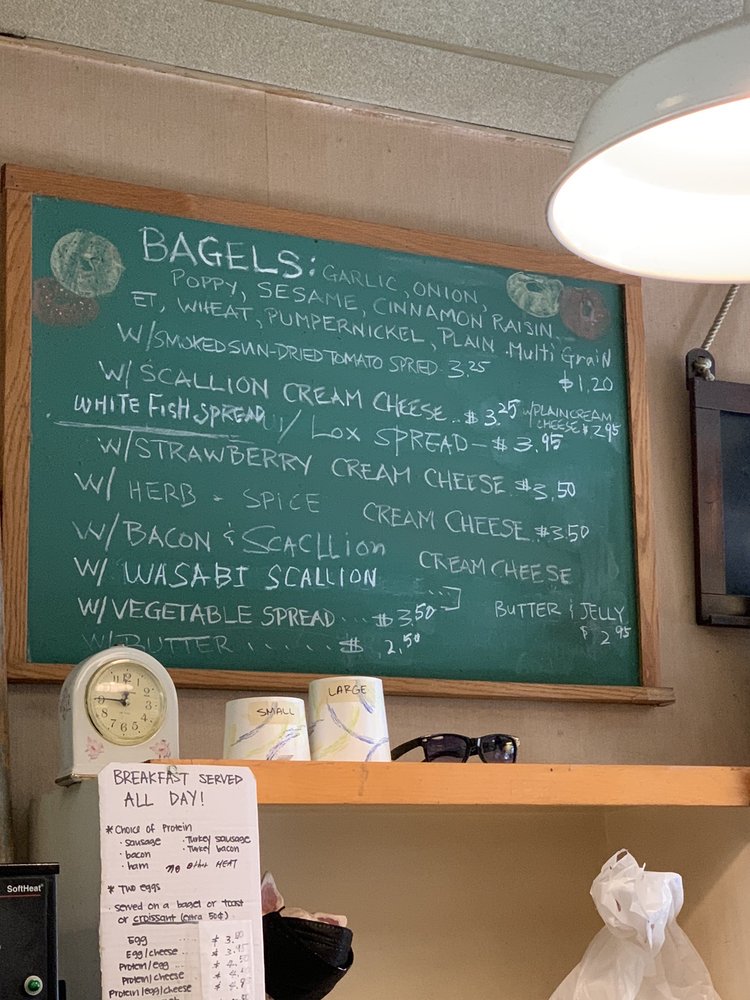 BAGELS: GARLIC, ONION,
POPPY, SESAME, CINNAMON RAISIN,
ET, WHEAT, PUMPERNICKEL, PLAIN. Multi GraiN
$1.20
W/SMOKED SUN-DRIED TOMATO SPRED 3.25
W/SCALLION CREAM CHEESE..$3.25
W/PLAIN CREAM
CHEESE $2.95
WHITE FISH SPREAD / LOX SPREAD - $3.95
W/STRAWBERRY CREAM CHEESE $3.50
W/ HERB & SPICE CREAM CHEESE $3.50
W/BACON & SCACLLION
W/ WASABI SCALLION CREAM CHEESE
W/VEGETABLE SPREAD ... $3.50
BUTTER & JELLY
$2.95
W/BUTTER ...... $2.50
12
SMALL
LARGE
BREAKFAST SERVED
ALL DAY!
* Choice of Protein
· sausage · Turkey sausage
· bacon · Turkey bacon
· ham no other MEAT
* Two eggs
served on a bagel or toast
or croissant (extra 50¢)
Egg ... $3.
Egg/cheese ... $3.
Protein/egg ... $4.
Protein/cheese $4.
Protein/egg/cheese $4.
SoftHeat